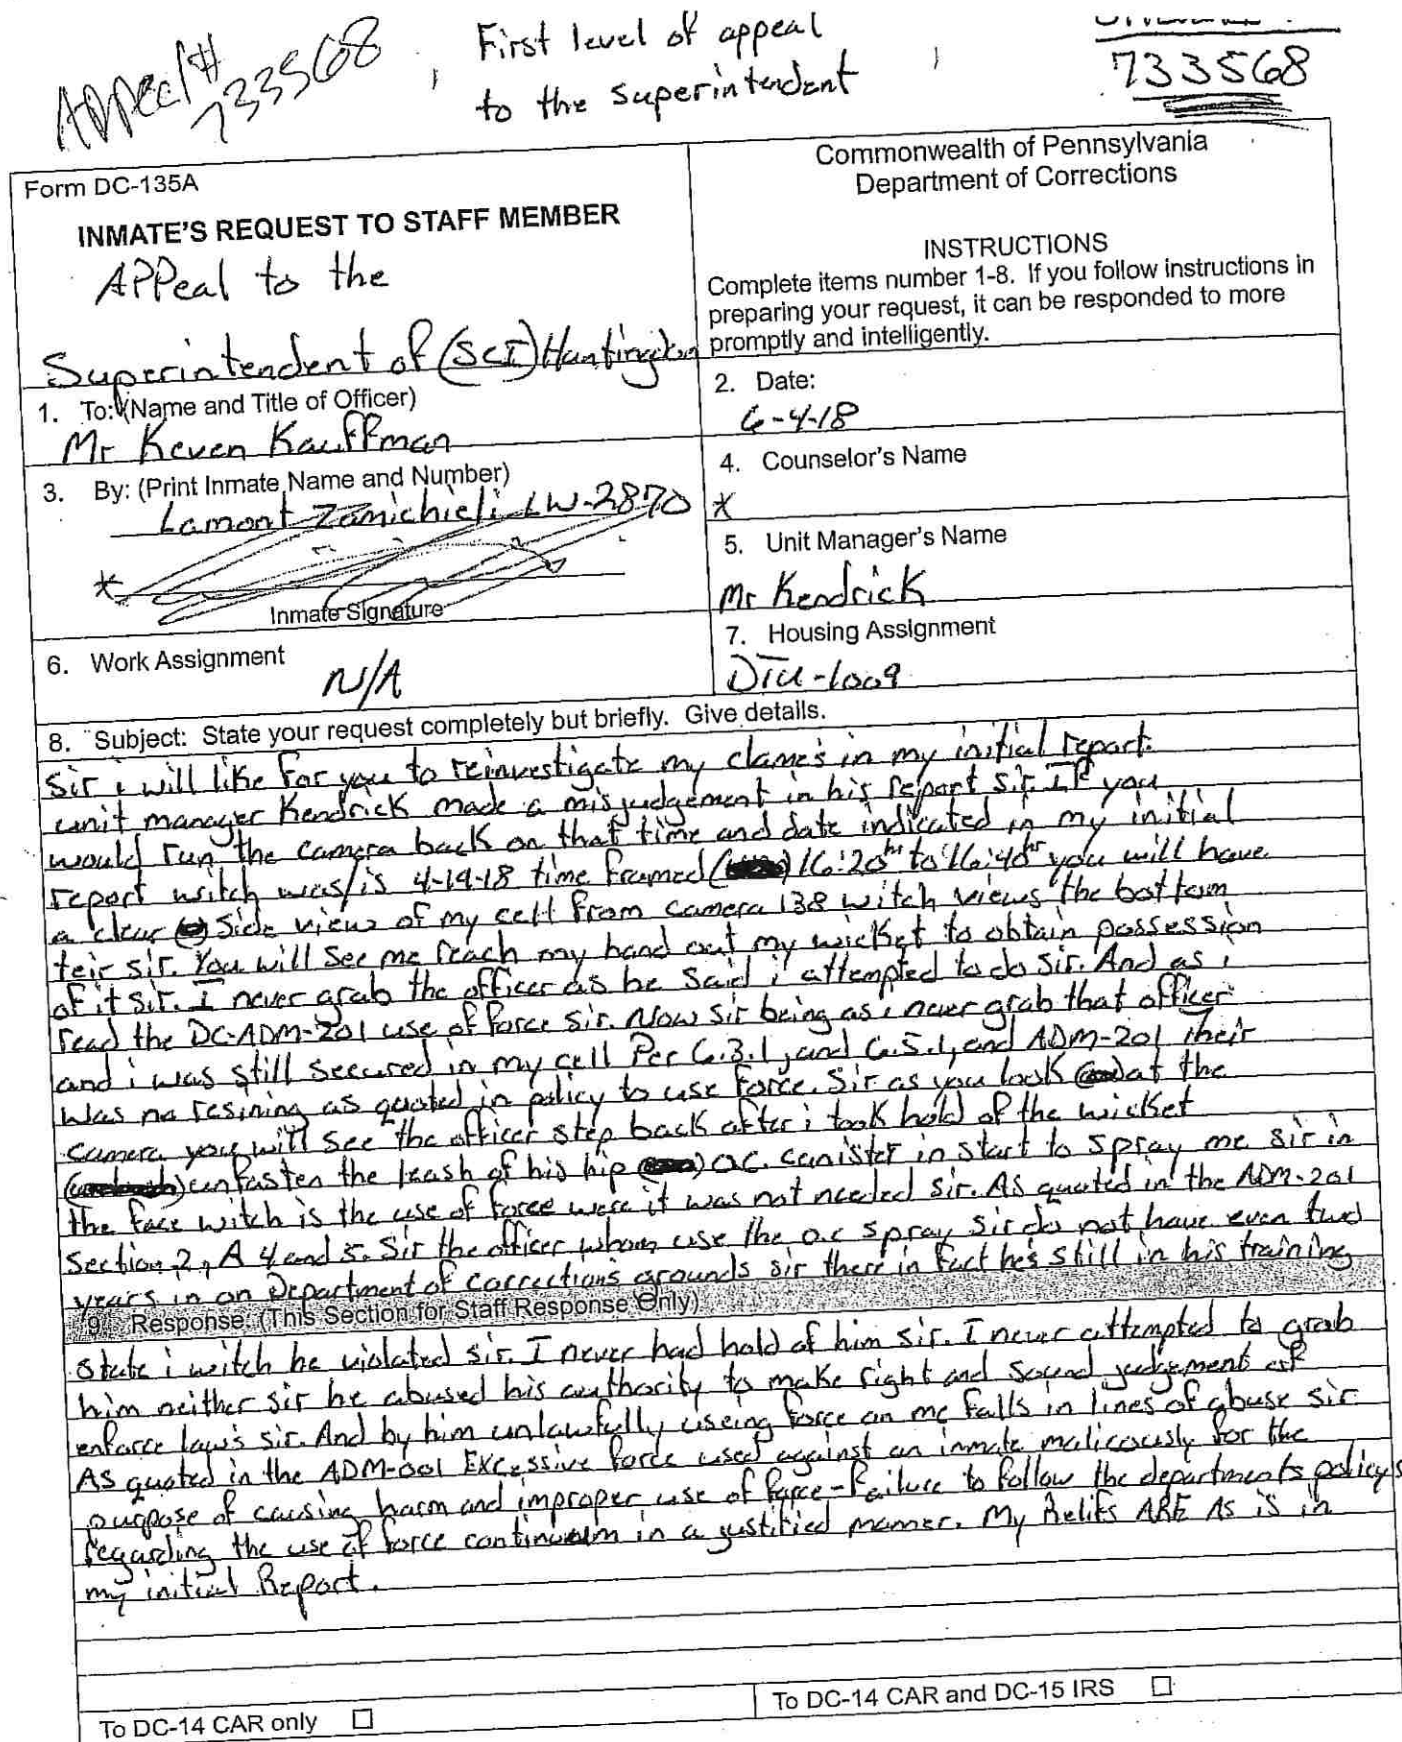 Appeal#
733568
First level of appeal
to the superintendent
733568
Form DC-135A
INMATE'S REQUEST TO STAFF MEMBER
APPeal to the
Superintendent of (SCI) Huntingdon
Commonwealth of Pennsylvania
Department of Corrections
INSTRUCTIONS
Complete items number 1-8. If you follow instructions in
preparing your request, it can be responded to more
promptly and intelligently.
1. To: (Name and Title of Officer)
Mr Keven Kauffman
2. Date:
6-4-18
3. By: (Print Inmate Name and Number)
Lamont Zamichieli LW-2870
*
Inmate Signature
4. Counselor's Name
*
5. Unit Manager's Name
Mr Kendrick
6. Work Assignment
N/A
7. Housing Assignment
DTU-1009
8. Subject: State your request completely but briefly. Give details.
Sir i will like for you to reinvestigate my clames in my initial report.
unit manager Kendrick made a misjudgement in his report sir. If you
would run the camera back on that time and date indicated in my initial
report witch was/is 4-19-18 time framed 16:20hr to 16:40hr you will have
a clear side view of my cell from camera 138 witch views the bottom
teir sir. You will see me reach my hand out my wicket to obtain possession
of it sir. I never grab the officer as he said i attempted to do sir. And as i
read the DC-ADM-201 use of force sir. Now sir being as i never grab that officer
and i was still secured in my cell Per 6.3.1, and 6.5.1, and ADM-201 their
was no resining as quoted in policy to use force. Sir as you look at the
camera you will see the officer step back after i took hold of the wicket
unfasten the leash of his hip o.c. canister in start to spray me sir in
the face witch is the use of force were it was not needed sir. As quoted in the ADM-201
Section 2, A 4 and 5. Sir the officer whom use the o.c spray sir do not have even two
years in on Department of corrections grounds sir there in fact he's still in his training
9. Response: (This Section for Staff Response Only)
state i witch he violated sir. I never had hold of him sir. I never attempted to grab
him neither sir he abused his authority to make right and sound judgement
enforce law's sir. And by him unlawfully useing force on me falls in lines of abuse sir
As quoted in the ADM-001 Excessive force used against an inmate malicously for the
purpose of causing harm and improper use of force-failure to follow the departments policy's
regarding the use of force continuum in a justified manner. My Relifs ARE As is in
my initial Report.
To DC-14 CAR only ☐
To DC-14 CAR and DC-15 IRS ☐